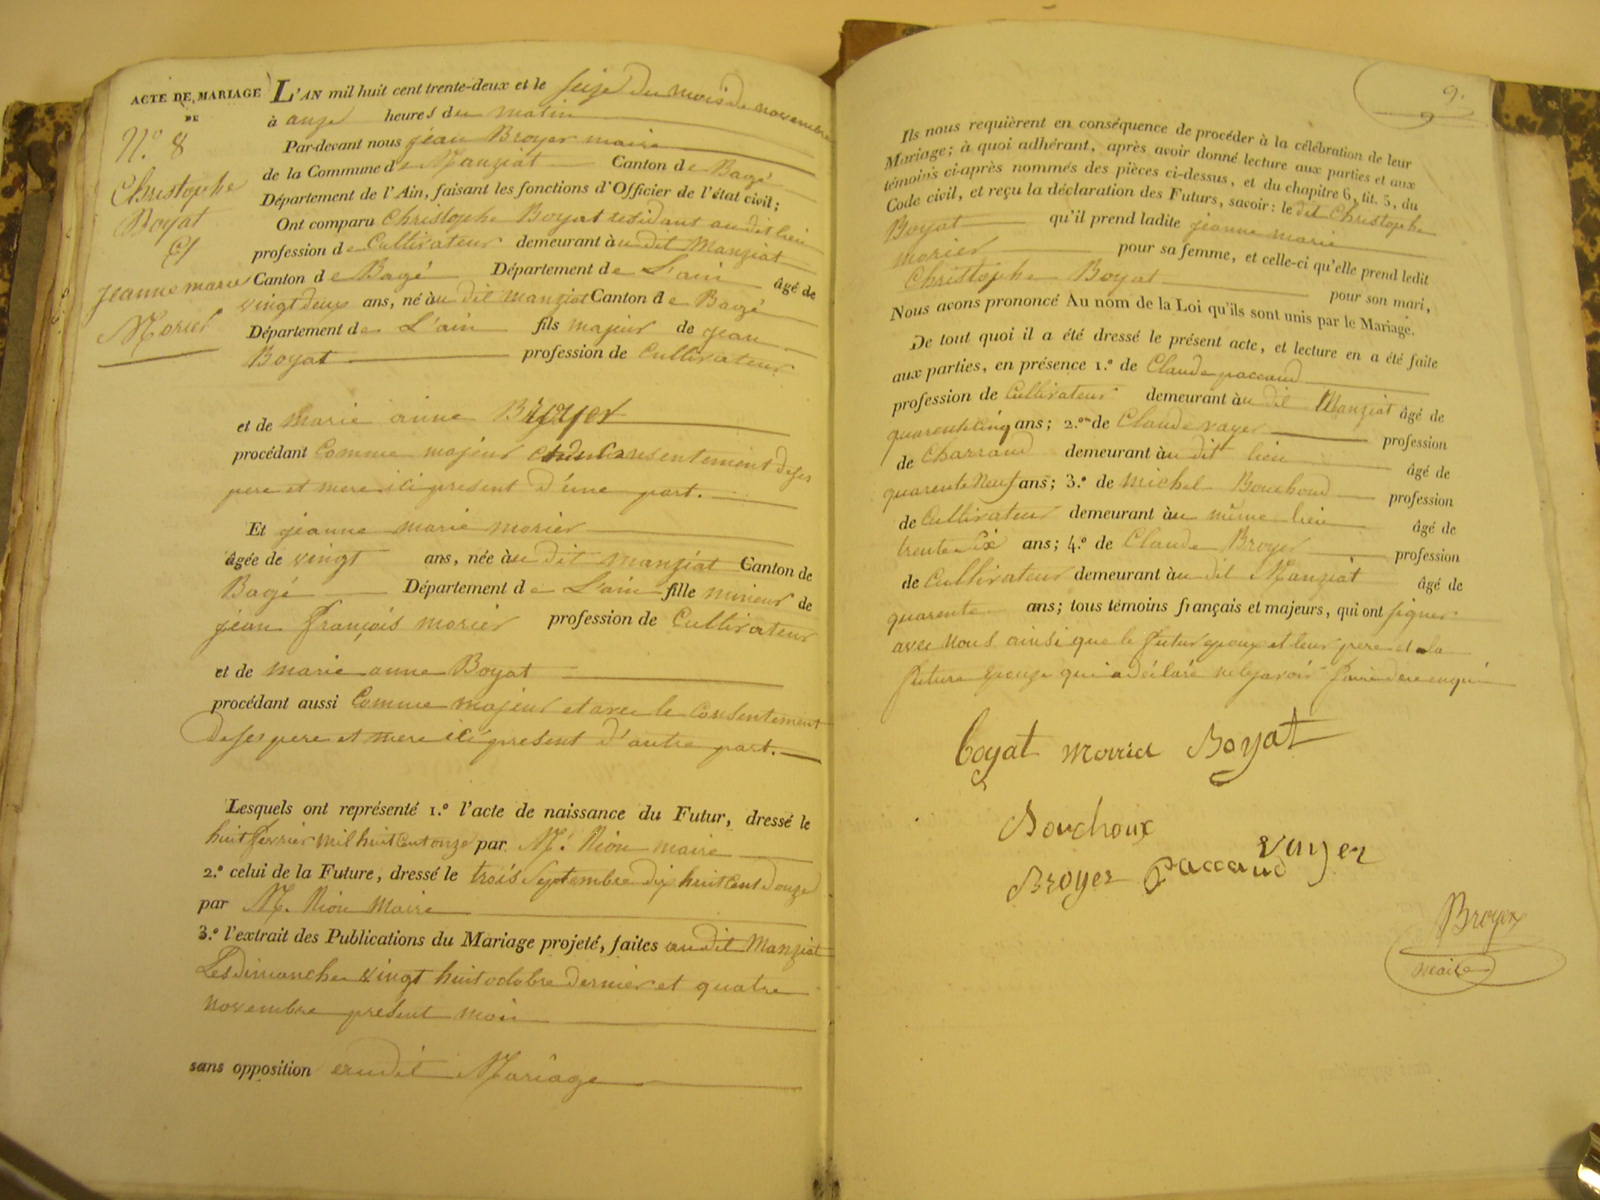 ACTE DE MARIAGE
DE
N.o 8
Christophe
Boyat
Et
jeanne marie
Morier
L'AN mil huit cent trente-deux et le seize du mois de novembre
à onze heures du matin
Par-devant nous jean Broyer maire
de la Commune de Manziat Canton de Bagé
Département de l'Ain, faisant les fonctions d'Officier de l'état civil;
Ont comparu Christophe Boyat residant au dit lieu
profession de Cultivateur demeurant àu dit Manziat
Canton de Bagé Département de L'ain âgé de
vingt deux ans, né àu dit manziat Canton de Bagé
Département de L'ain fils majeur de jean
Boyat profession de Cultivateur
et de marie anne Broyer
procédant Comme majeur consentement de ses
pere et mere ici present d'une part.
Et jeanne marie morier
âgée de vingt ans, née àu dit manziat Canton de
Bagé Département de L'ain fille mineur de
jean françois morier profession de Cultivateur
et de marie anne Boyat
procédant aussi Comme majeur et avec le Consentement
de ses pere et mere ici present d'autre part.
Lesquels ont représenté 1.o l'acte de naissance du Futur, dressé le
huit fevrier mil huit Cent onze par M. Nion maire
2.o celui de la Future, dressé le trois Septembre dix huit Cent douze
par M. Nion Maire
3.o l'extrait des Publications du Mariage projeté, faites au dit Manziat
Les dimanche vingt huit octobre dernier et quatre
novembre present mois
sans opposition au dit Mariage
9.
Ils nous requièrent en conséquence de procéder à la célébration de leur
Mariage; à quoi adhérant, après avoir donné lecture aux parties et aux
témoins ci-après nommés des pièces ci-dessus, et du chapitre 6, tit. 5, du
Code civil, et reçu la déclaration des Futurs, savoir: le dit Christophe
Boyat qu'il prend ladite jeanne marie
morier pour sa femme, et celle-ci qu'elle prend ledit
Christophe Boyat pour son mari,
Nous avons prononcé Au nom de la Loi qu'ils sont unis par le Mariage.
De tout quoi il a été dressé le présent acte, et lecture en a été faite
aux parties, en présence 1.o de Claude paccaud
profession de Cultivateur demeurant àu dit Manziat âgé de
quarente Cinq ans; 2.o de Claude vayer profession
de Charraud demeurant àu dit lieu âgé de
quarente Neuf ans; 3.o de michel Bouchoud profession
de Cultivateur demeurant àu même lieu âgé de
trente Six ans; 4.o de Claude Broyer profession
de Cultivateur demeurant àu dit Manziat âgé de
quarente ans; tous témoins français et majeurs, qui ont signer
avec nous ainsi que le futur epoux et leur pere et la
future epouze qui a déclaré ne le savoir faire de ce enquis
boyat morier Boyat
Bouchoux
Broyer paccaud vayer
Broyer
maire